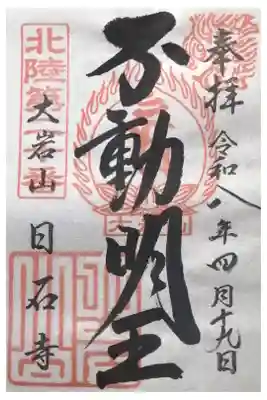 奉拝 令和八年四月十九日
不動明王
北陸第一番
大岩山 日石寺